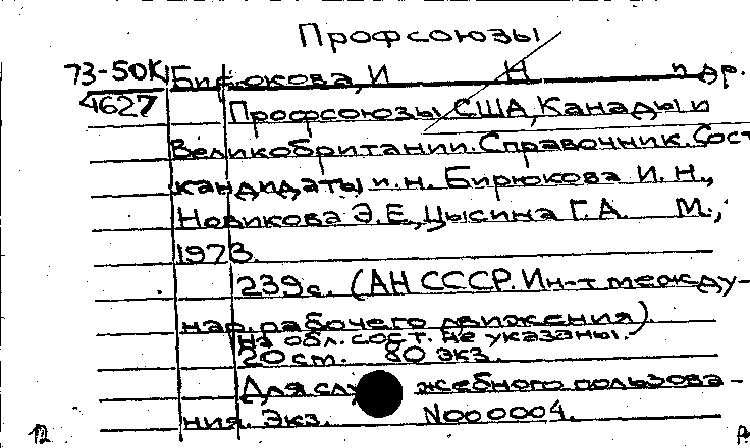 Профсоюзы
73-50К Бирюкова, И Н и др.
4627 Профсоюзы США, Канады и
Великобритании. Справочник. Сост
кандидаты и.н. Бирюкова И. Н.,
Новикова Э. Е., Цысина Г. А. М.,
1973.
239с. (АН СССР. Ин-т между-
нар. рабочего движения)
на обл. сост. не указаны.
20 см. 80 экз.
Для служебного пользова-
ния. Экз. N000004.
12